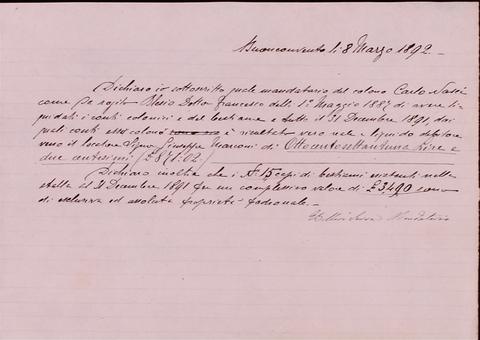 Buonconvento li 8 Marzo 1892.
Dichiaro io sottoscritto quale mandatario del colono Carlo Nassi
come da rogito Dottor Francesco delli 1° Maggio 1887 di avere li-
quidati i conti colonici e del bestiame a tutto il 31 Dicembre 1891, dai
quali conti esso colono è risultato vero reale e liquido debitore
verso il locatore Signor Giuseppe Marconi di Ottocentosettantuna Lire e
due centesimi (£ 871:02)
Dichiaro inoltre che i N° 15 capi di bestiami esistenti nella
stalla al 31 Dicembre 1891 per un complessivo valore di £ 3490 sono
di esclusiva ed assoluta proprietà padronale.-